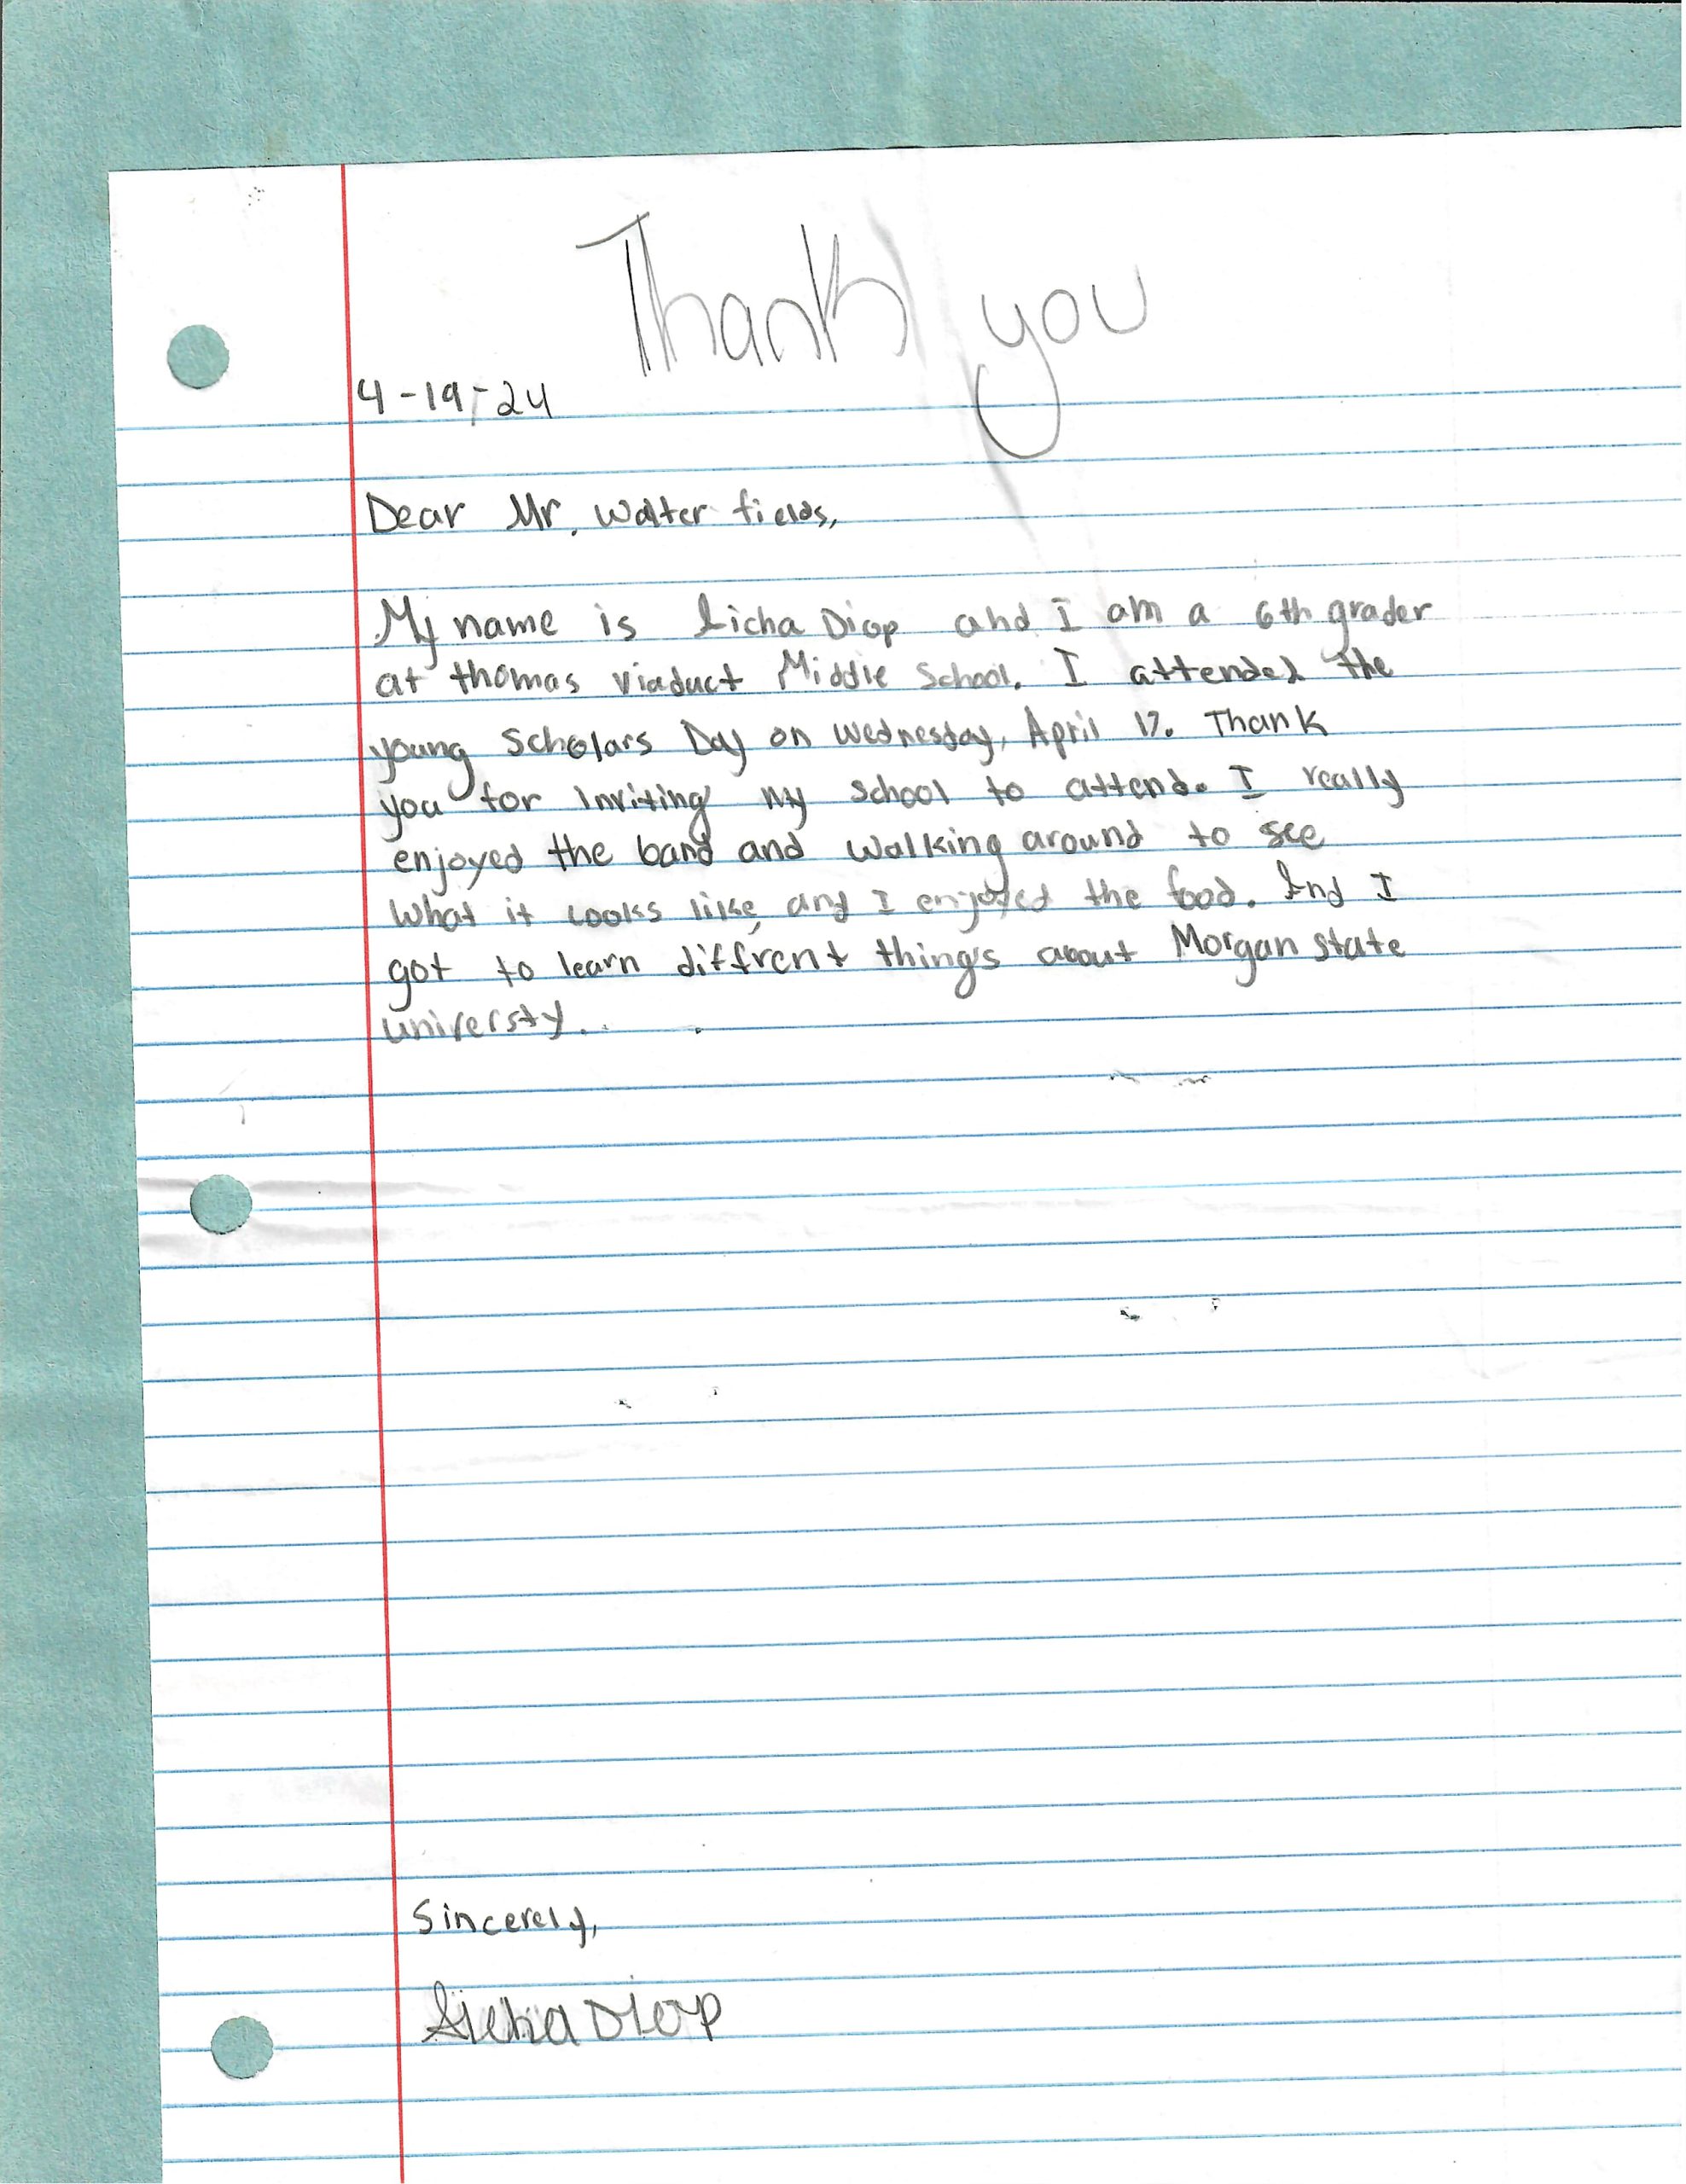 Thank you
4-19-24
Dear Mr. Walter fields,
My name is Aicha Diop and I am a 6th grader
at thomas viaduct Middle School. I attended the
young Scholars Day on wednesday, April 17. Thank
you for inviting my school to attend. I really
enjoyed the band and walking around to see
what it looks like, and I enjoyed the food. And I
got to learn diffrent things about Morgan state
universty.
Sincerely,
Aicha Diop